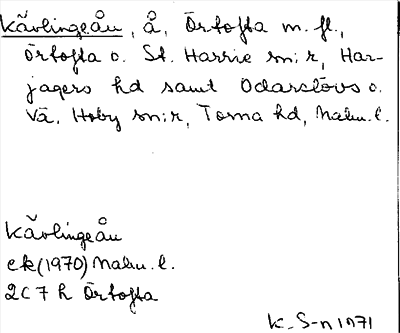 Kävlingeån, å, Örtofta m. fl.,
Örtofta o. St. Harrie sn:r, Har-
jagers hd samt Odarslövs o.
Vä. Hoby sn:r, Torna hd, Malm. l.
Kävlingeån
ek (1970) Malm. l.
2C 7 h Örtofta
K. S-n 1971